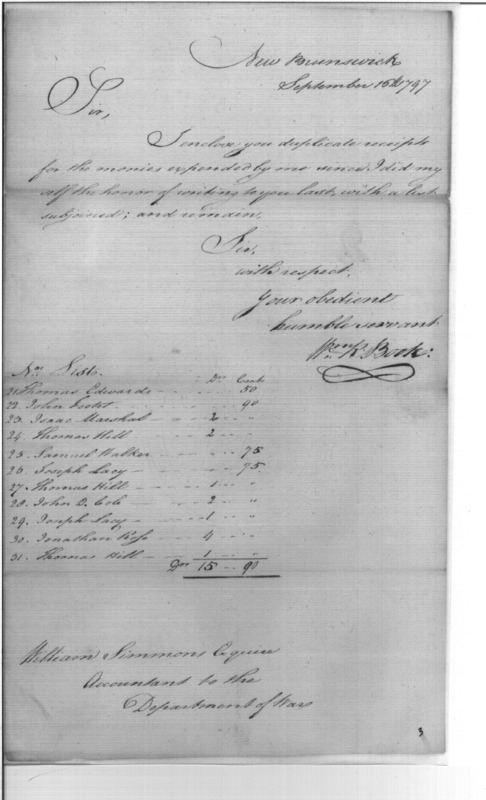 New Brunswick
September 15th 1797
Sir,
I enclose you duplicate receipts
for the monies expended by me since I did my
self the honor of writing to you last, with a list
subjoined; and remain,
Sir,
with respect,
Your obedient
humble servant
Wm K. Book:
No. Liste. Drs Cents
21. Thomas Edwards - - - 50
22. John - - - 90
23. Isaac Marshal - - 2 - - "
24. Thomas Hill - - 2 - - "
25. Samuel Walker - - - 75
26. Joseph Lacy - - - 75
27. Thomas Hill - - 1 - - "
28. John D. Cole - - 2 - - "
29. Joseph Lacy - - 1 - - "
30. Jonathan Rose - - 4 - - "
31. Thomas Hill - - 1 - - "
Drs 15 - - 90
William Simmons Esquire
Accountant to the
Department of War
3